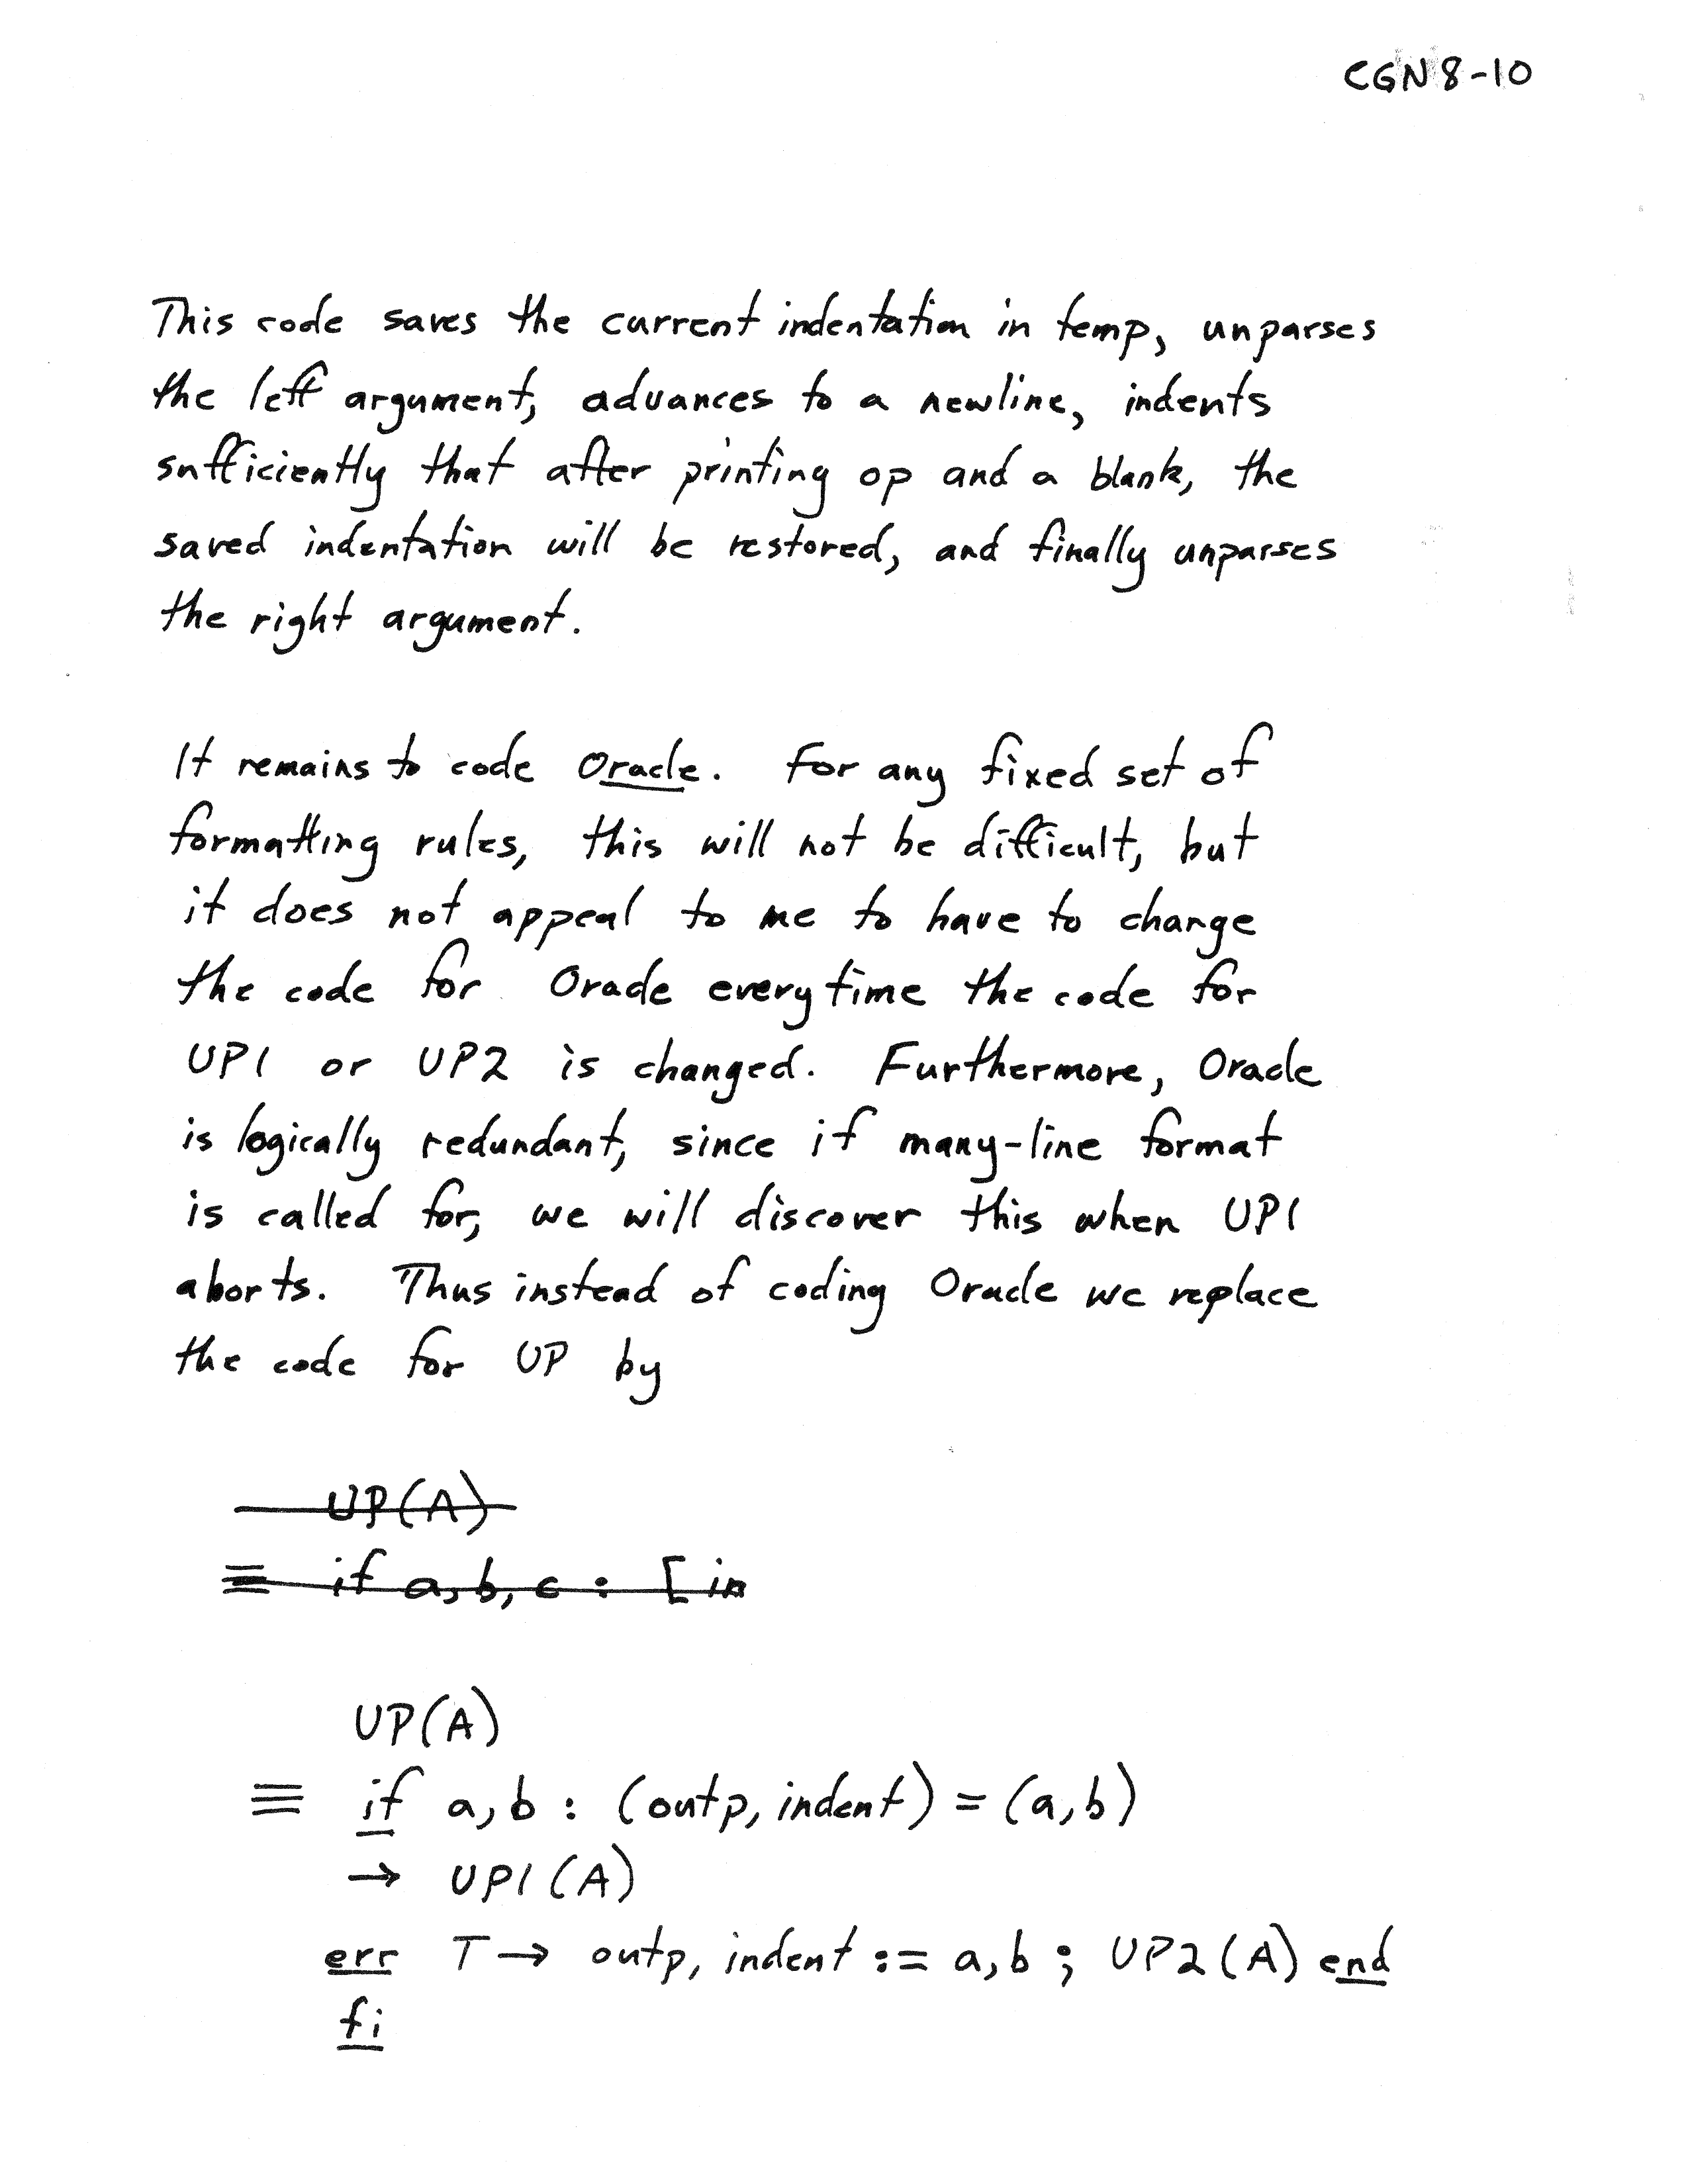 CGN8-10
This code saves the current indentation in temp, unparses
the left argument, advances to a newline, indents
sufficiently that after printing op and a blank, the
saved indentation will be restored, and finally unparses
the right argument.
It remains to code Oracle. For any fixed set of
formatting rules, this will not be difficult, but
it does not appeal to me to have to change
the code for Oracle everytime the code for
UP1 or UP2 is changed. Furthermore, Oracle
is logically redundant, since if many-line format
is called for, we will discover this when UP1
aborts. Thus instead of coding Oracle we replace
the code for UP by
UP(A)
≡ if a, b, c : [ in
UP(A)
≡ if a, b : (outp, indent) = (a, b)
→ UP1(A)
err T → outp, indent := a, b ; UP2(A) end
fi